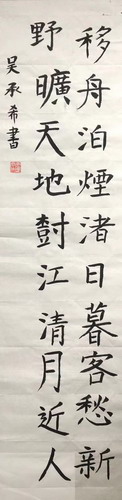 移舟泊煙渚日暮客愁新
野曠天地樹江清月近人
吴承希書